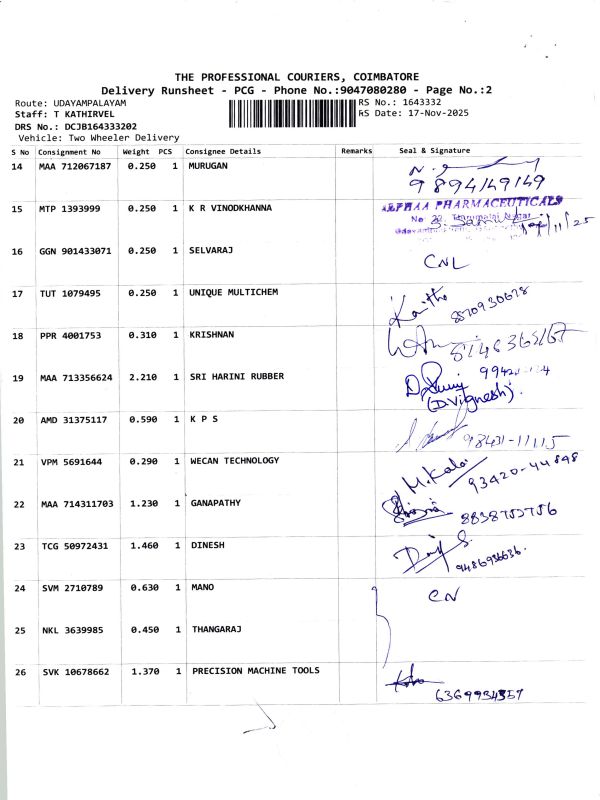 THE PROFESSIONAL COURIERS, COIMBATORE
Delivery Runsheet - PCG - Phone No.:9047080280 - Page No.:2
Route: UDAYAMPALAYAM RS No.: 1643332
Staff: T KATHIRVEL RS Date: 17-Nov-2025
DRS No.: DCJB164333202
Vehicle: Two Wheeler Delivery
S No Consignment No Weight PCS Consignee Details Remarks Seal & Signature
14 MAA 712067187 0.250 1 MURUGAN
9894149149
15 MTP 1393999 0.250 1 K R VINODKHANNA ALPHAA PHARMACEUTICALS
No 22, Thirumalai Nagar
16 GGN 901433071 0.250 1 SELVARAJ CNL
17 TUT 1079495 0.250 1 UNIQUE MULTICHEM
18 PPR 4001753 0.310 1 KRISHNAN
19 MAA 713356624 2.210 1 SRI HARINI RUBBER
(D.Vignesh).
20 AMD 31375117 0.590 1 K P S 98431-11115
21 VPM 5691644 0.290 1 WECAN TECHNOLOGY M.Kalai 93420-44848
22 MAA 714311703 1.230 1 GANAPATHY 8838753756
23 TCG 50972431 1.460 1 DINESH
9486936636.
24 SVM 2710789 0.630 1 MANO CN
25 NKL 3639985 0.450 1 THANGARAJ
26 SVK 10678662 1.370 1 PRECISION MACHINE TOOLS
6369934357